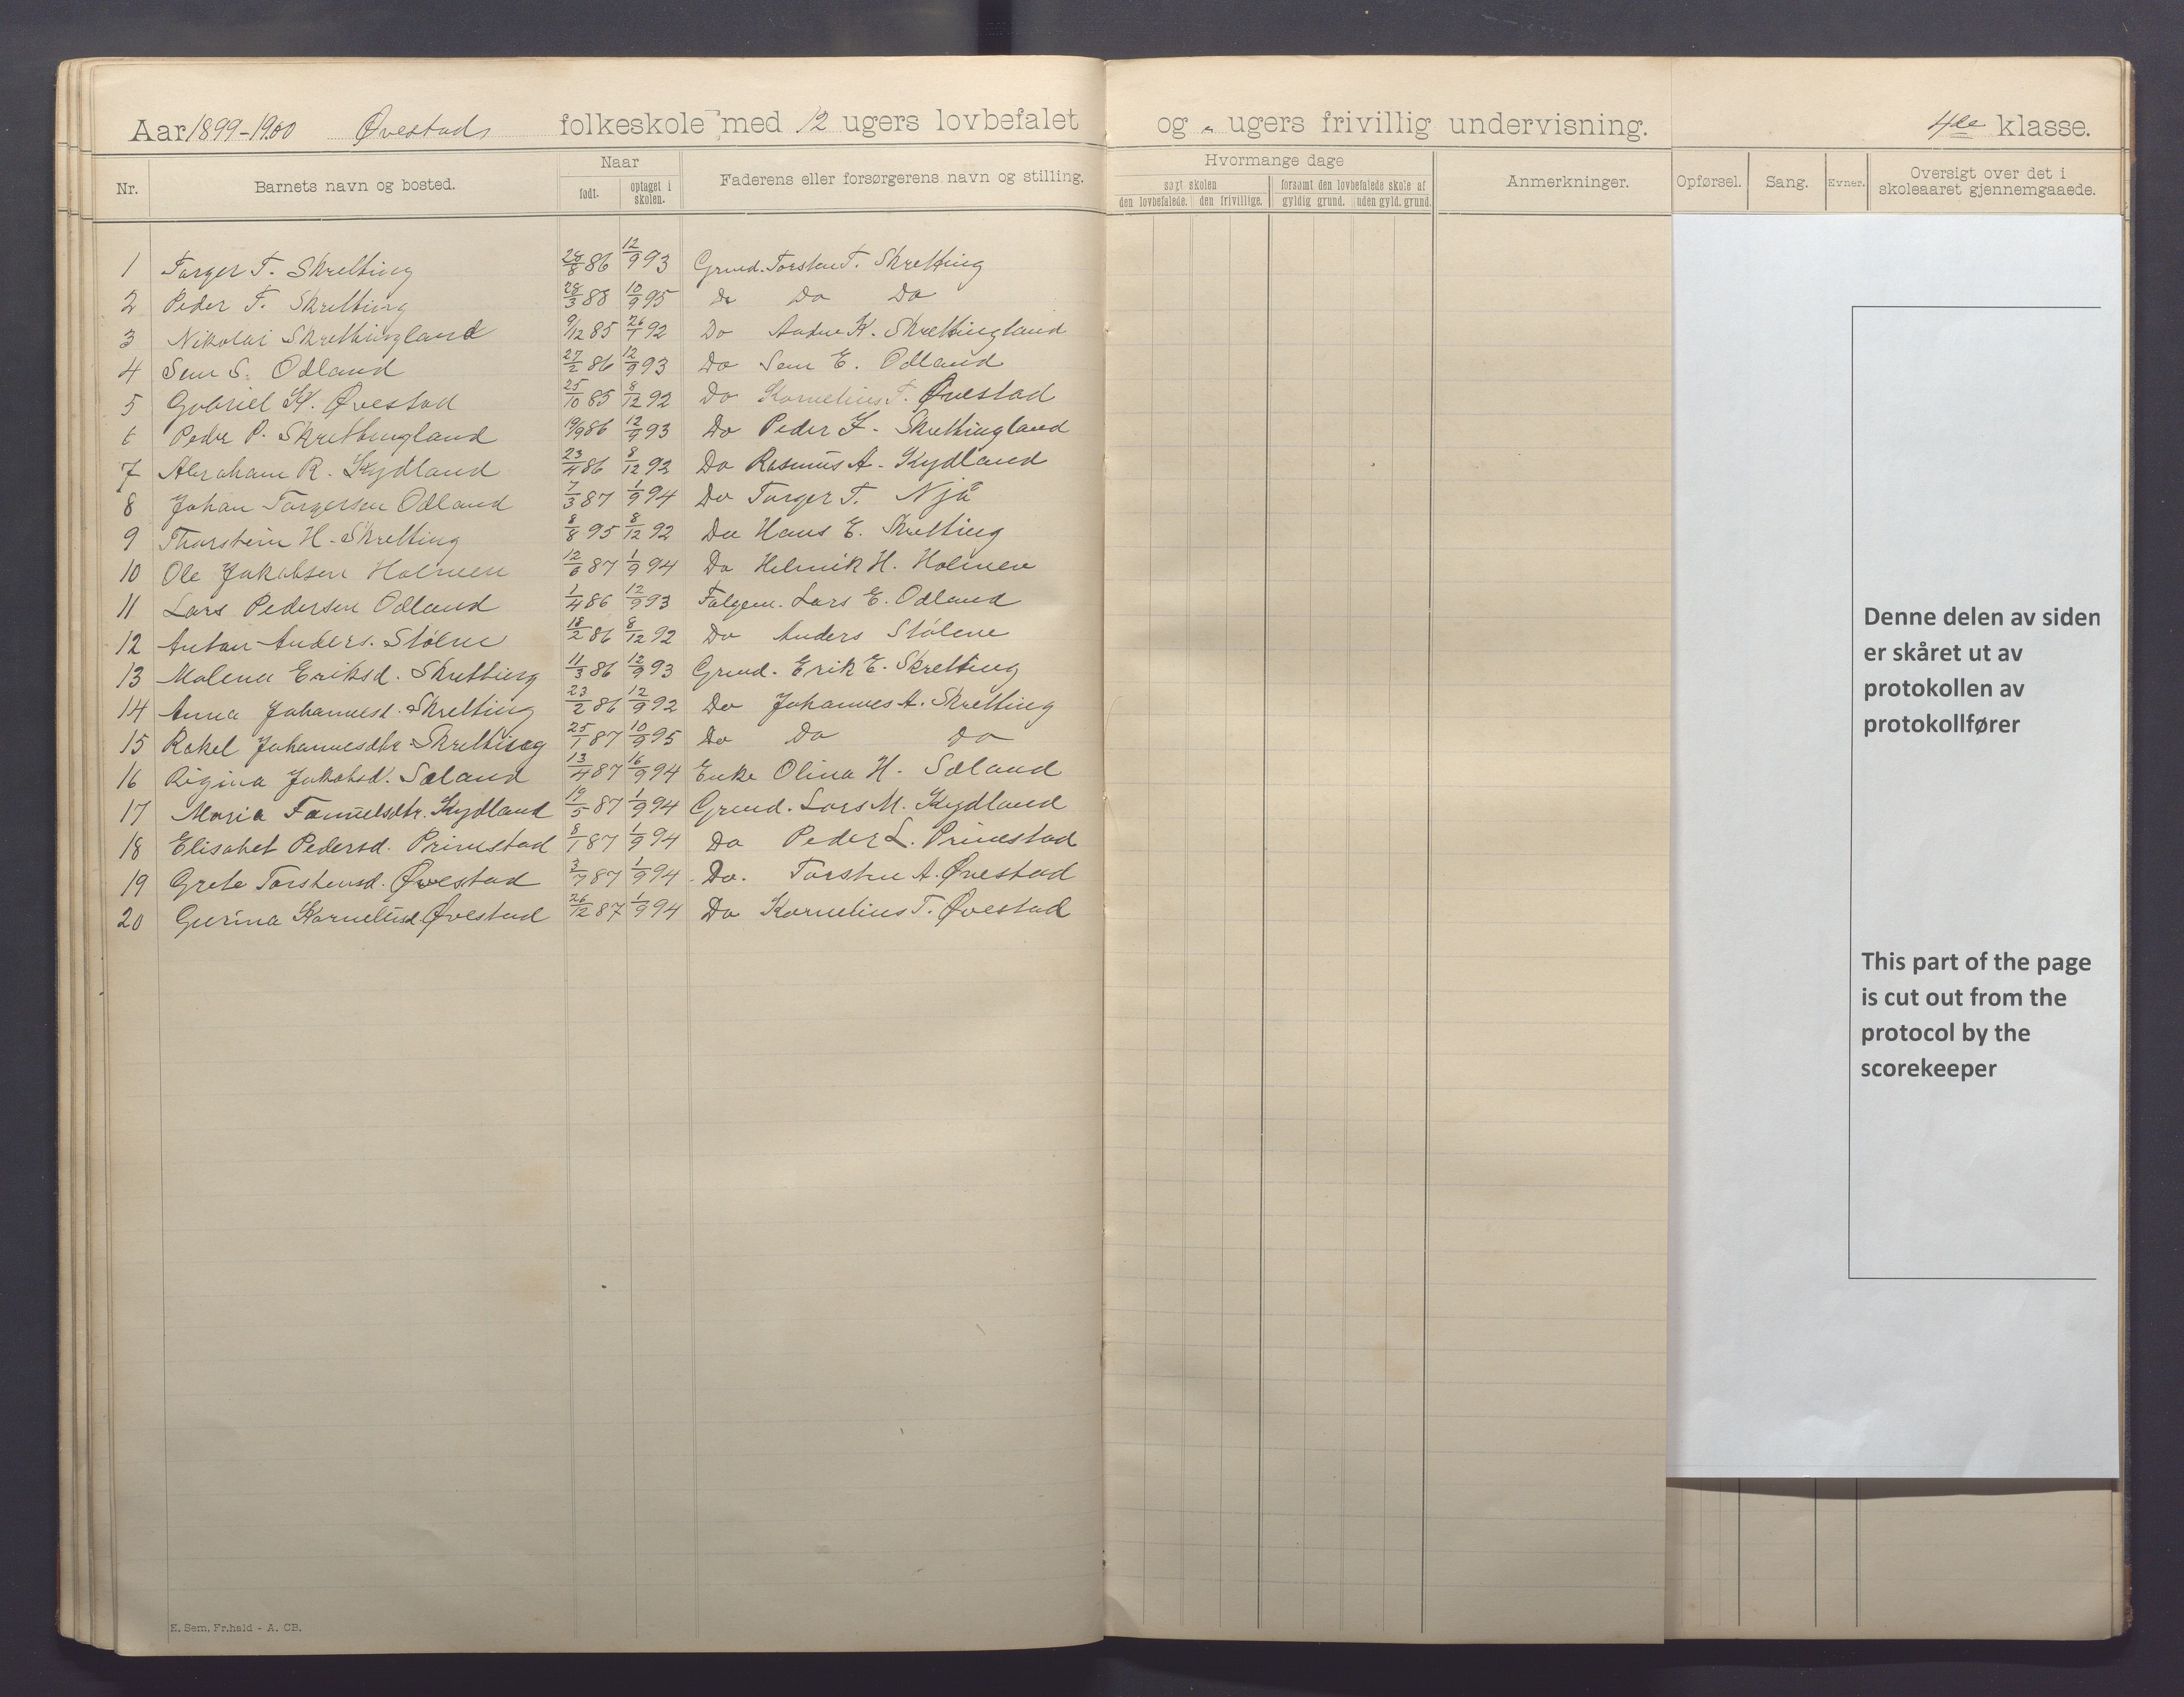 Aar 1899-1900 Øvestads folkeskole med 12 ugers lovbefalet og „ ugers frivillig undervisning. 4de klasse.
Nr. Barnets navn og bosted. Naar født. optaget i skolen. Faderens eller forsørgerens navn og stilling. Hvormange dage søgt skolen den lovbefalede. den frivillige. forsømt den lovbefalede skole af gyldig grund. uden gyld. grund. Anmerkninger. Opførsel. Sang. Evner. Oversigt over det i skoleaaret gjennemgaaede.
1 Torger T. Skretting 28/8 86 12/9 93 Grmd. Torsten T. Skretting
2 Peder T. Skretting 28/3 88 10/9 95 Do Do Do
3 Nikolai Skrettingland 9/12 85 26/1 92 Do K. Skrettingland
4 Sem S. Odland 27/2 86 12/9 93 Do Sem E. Odland
5 Gabriel K. Øvestad 25/10 85 8/12 92 Do Kornelius T. Øvestad
6 Peder P. Skrettingland 19/9 86 12/9 93 Do Peder J. Skrettingland
7 Abraham R. Kydland 23/4 86 8/12 92 Do Rasmus A. Kydland
8 Johan Torgersen Odland 7/3 87 1/9 94 Do Torger T. Njå
9 Thorstein H. Skretting 8/8 95 8/12 92 Do Hans E. Skretting
10 Ole Jakobsen Holmen 12/6 87 1/9 94 Do Helmik H. Holmen
11 Lars Pedersen Odland 1/4 86 12/9 93 Lars E. Odland
12 Anton Anders. Stølene 18/2 86 8/12 92 Do Anders Stølene
13 Malena Eriksd. Skretting 11/3 86 12/9 93 Grmd. Erik E. Skretting
14 Anna Johannesd. Skretting 23/2 86 12/9 92 Do Johannes A. Skretting
15 Rakel Johannesdtr Skretting 25/1 87 10/9 95 Do Do Do
16 Rigina Jakobsd. Sæland 13/4 87 16/9 94 Enke Olina H. Sæland
17 Maria Kydland 19/5 87 1/9 94 Grmd. Lars M. Kydland
18 Elisabet Pedersd. Primstad 8/1 87 1/9 94 Do Peder L. Primestad
19 Grete Torstensd. Øvestad 3/7 87 1/9 94 Do. Torsten A. Øvestad
20 Gurina Korneliusd. Øvestad 26/12 87 1/9 94 Do Kornelius T. Øvestad
Denne delen av siden
er skåret ut av
protokollen av
protokollfører
This part of the page
is cut out from the
protocol by the
scorekeeper
E. Sem, Fr.hald - A. CB.